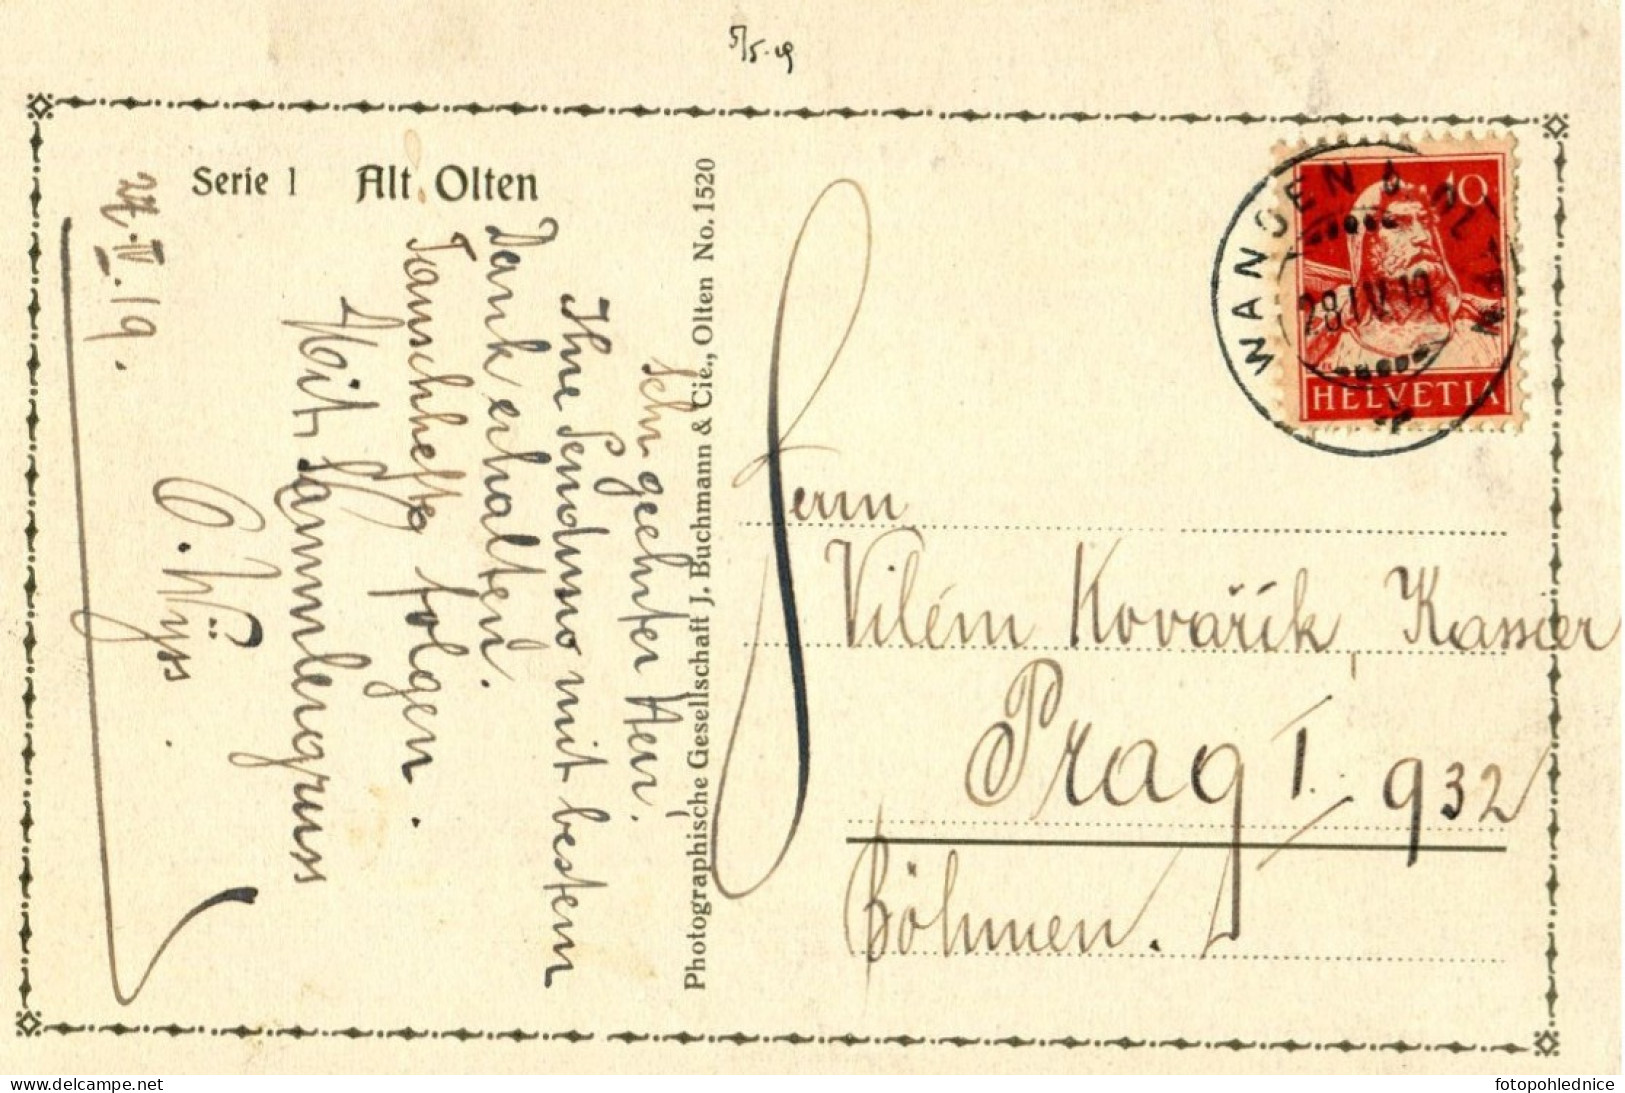 5/5.19
Serie 1 Alt Olten
27.IV.19.
Sehr geehrter Herr.
Ihre Sendung mit bestem
Dank erhalten.
Tauschhefte folgen.
Mit Sammlergruss
O. Wyss.
Photographische Gesellschaft J. Buchmann & Cie., Olten No. 1520
WANGEN
28.IV.19
10
HELVETIA
Herrn
Vilém Kovářík, Kassier
Prag I. 932
Böhmen.
www.delcampe.net
fotopohlednice